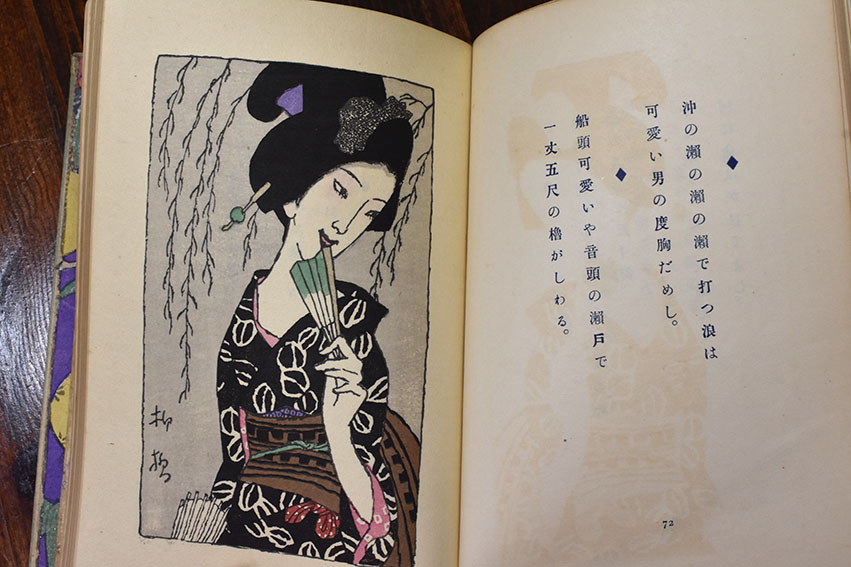 沖の瀬の瀬の瀬で打つ浪は
可愛い男の度胸だめし。
船頭可愛いや音頭の瀬戸で
一丈五尺の櫓がしわる。
72
柳橋